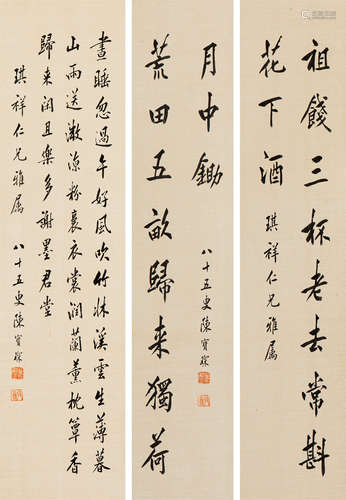 祖餞三杯老去常斟
花下酒
琪祥仁兄雅属
荒田五畝歸来獨荷
月中鋤
八十五叟陳寶琛
晝睡忽過午好風吹竹牀溪雲生薄暮
山雨送涼粉裛衣裳潤蘭薰枕簟香
歸来閒且樂多謝墨君堂
琪祥仁兄雅属 八十五叟陳寶琛